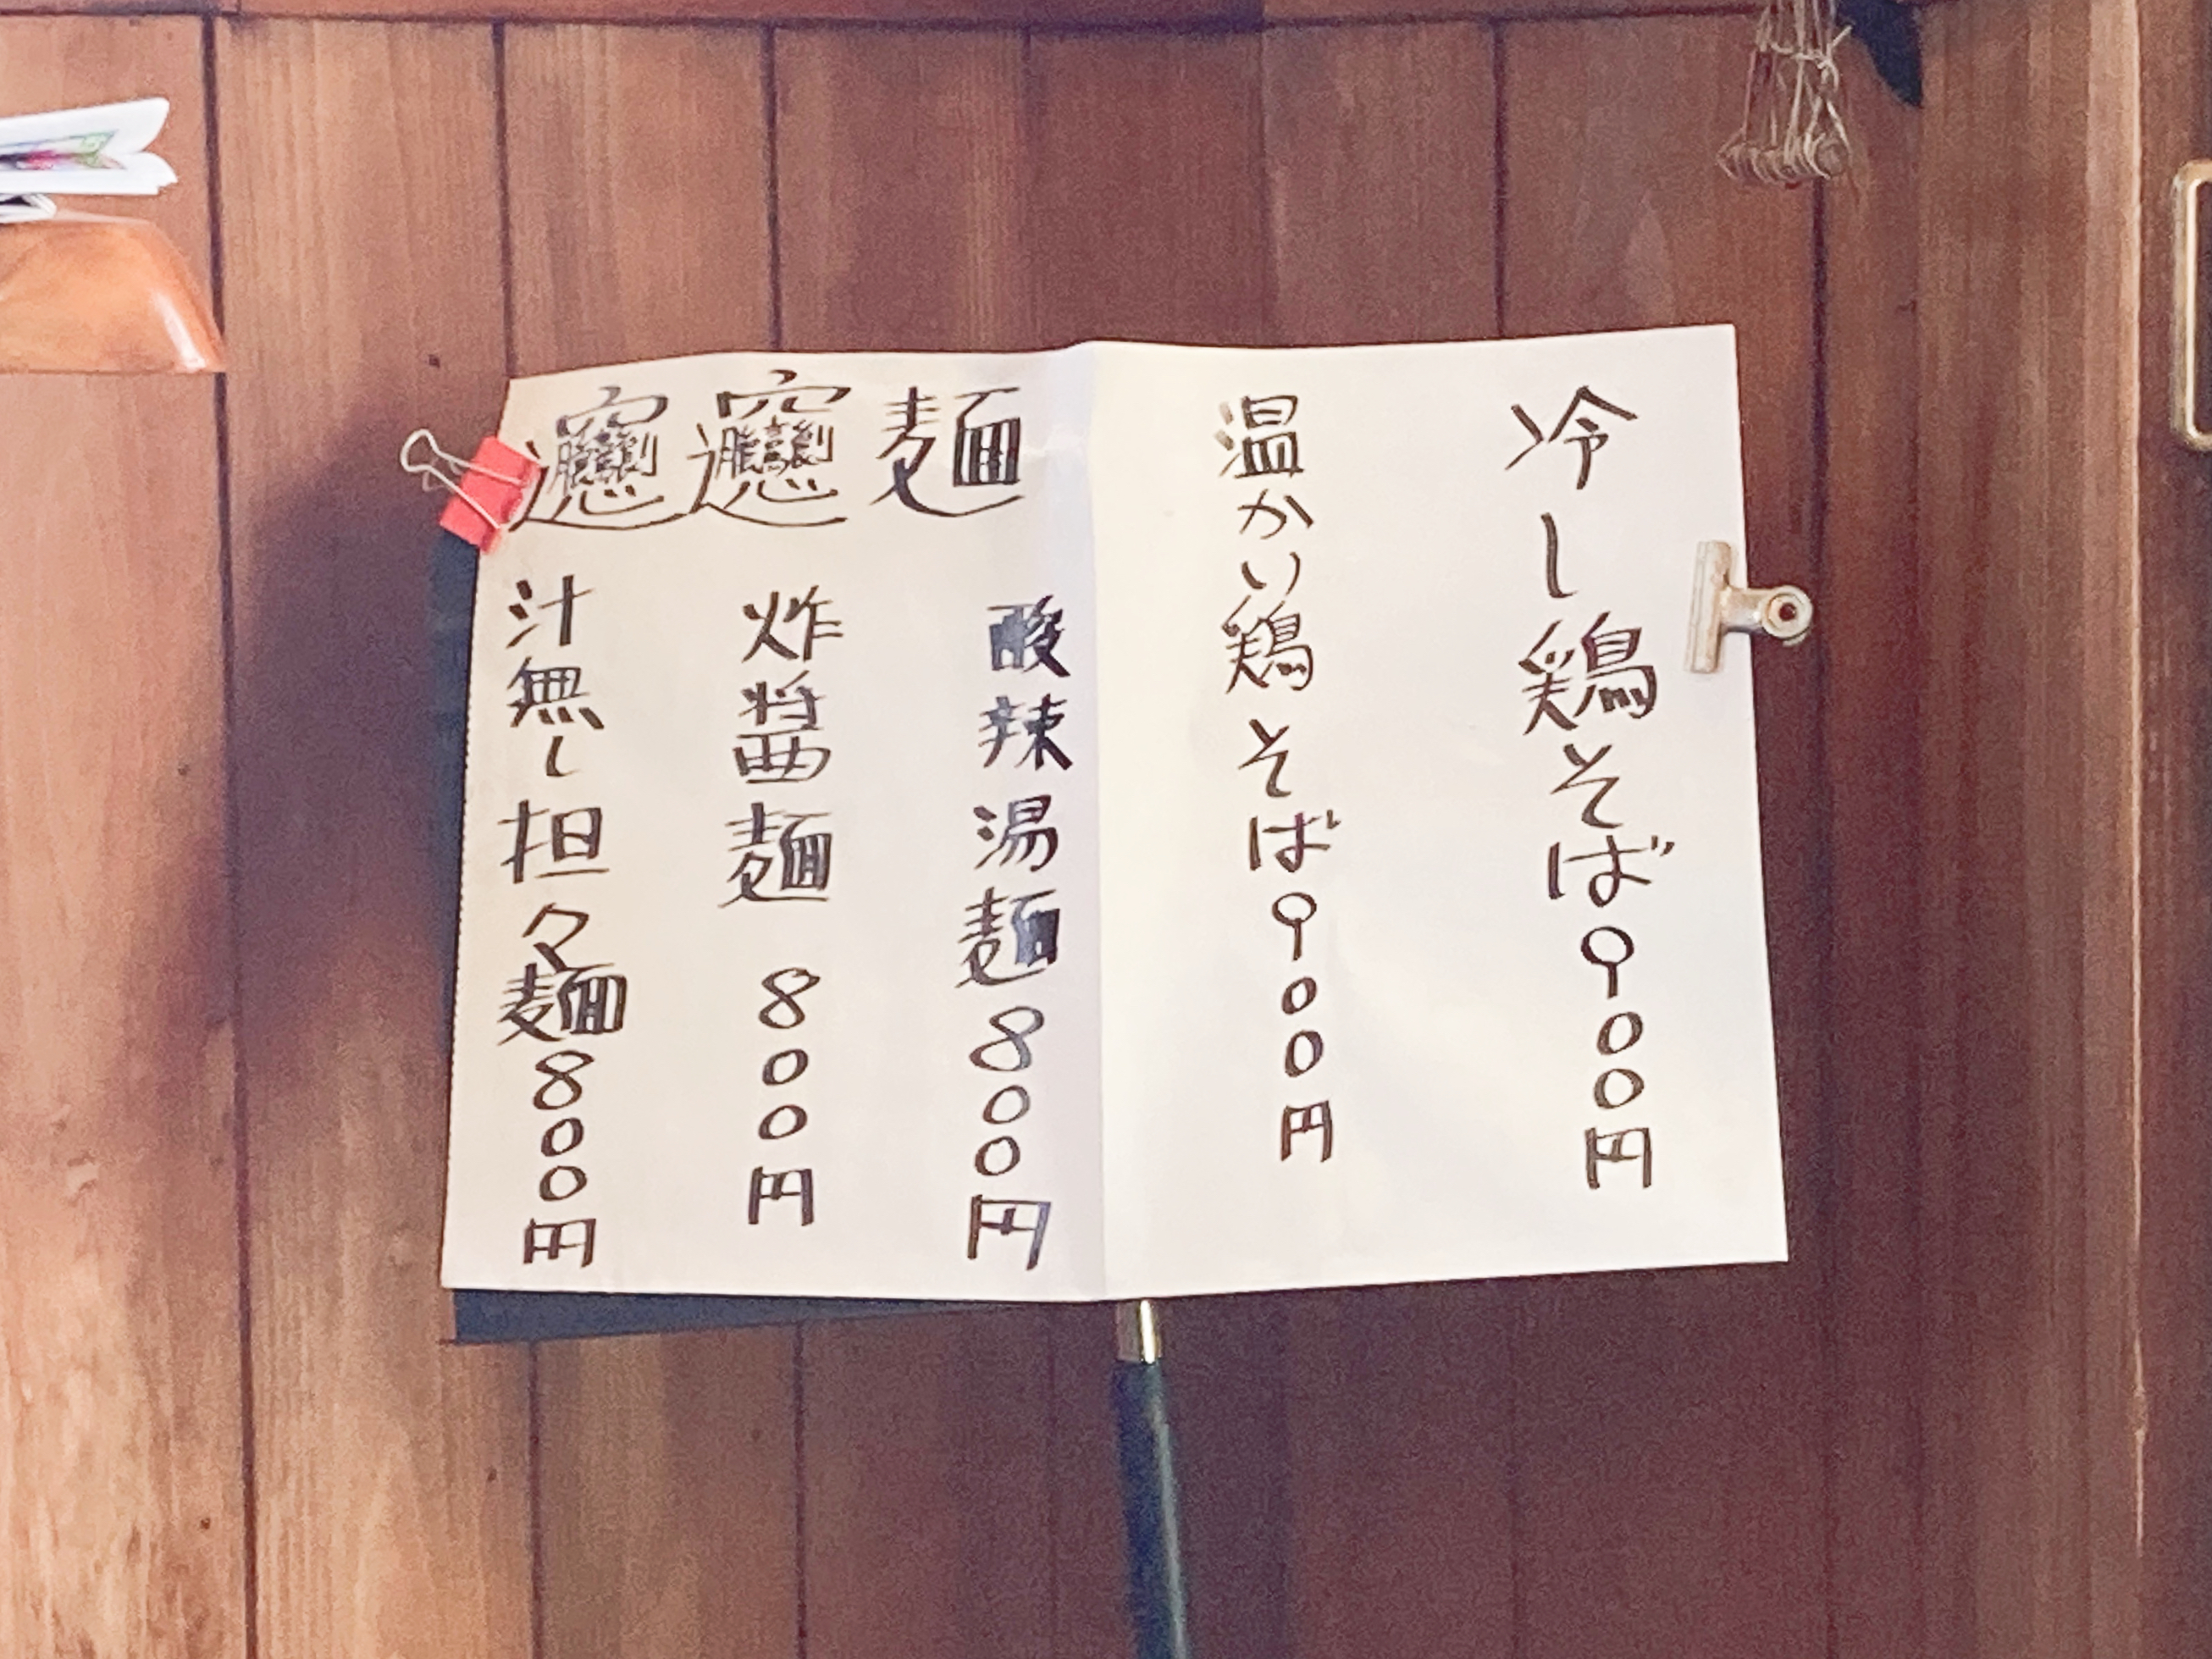 冷し鶏そば900円
温かい鶏そば900円
𰻞𰻞麺
酸辣湯麺800円
炸醤麺 800円
汁無し担々麺800円